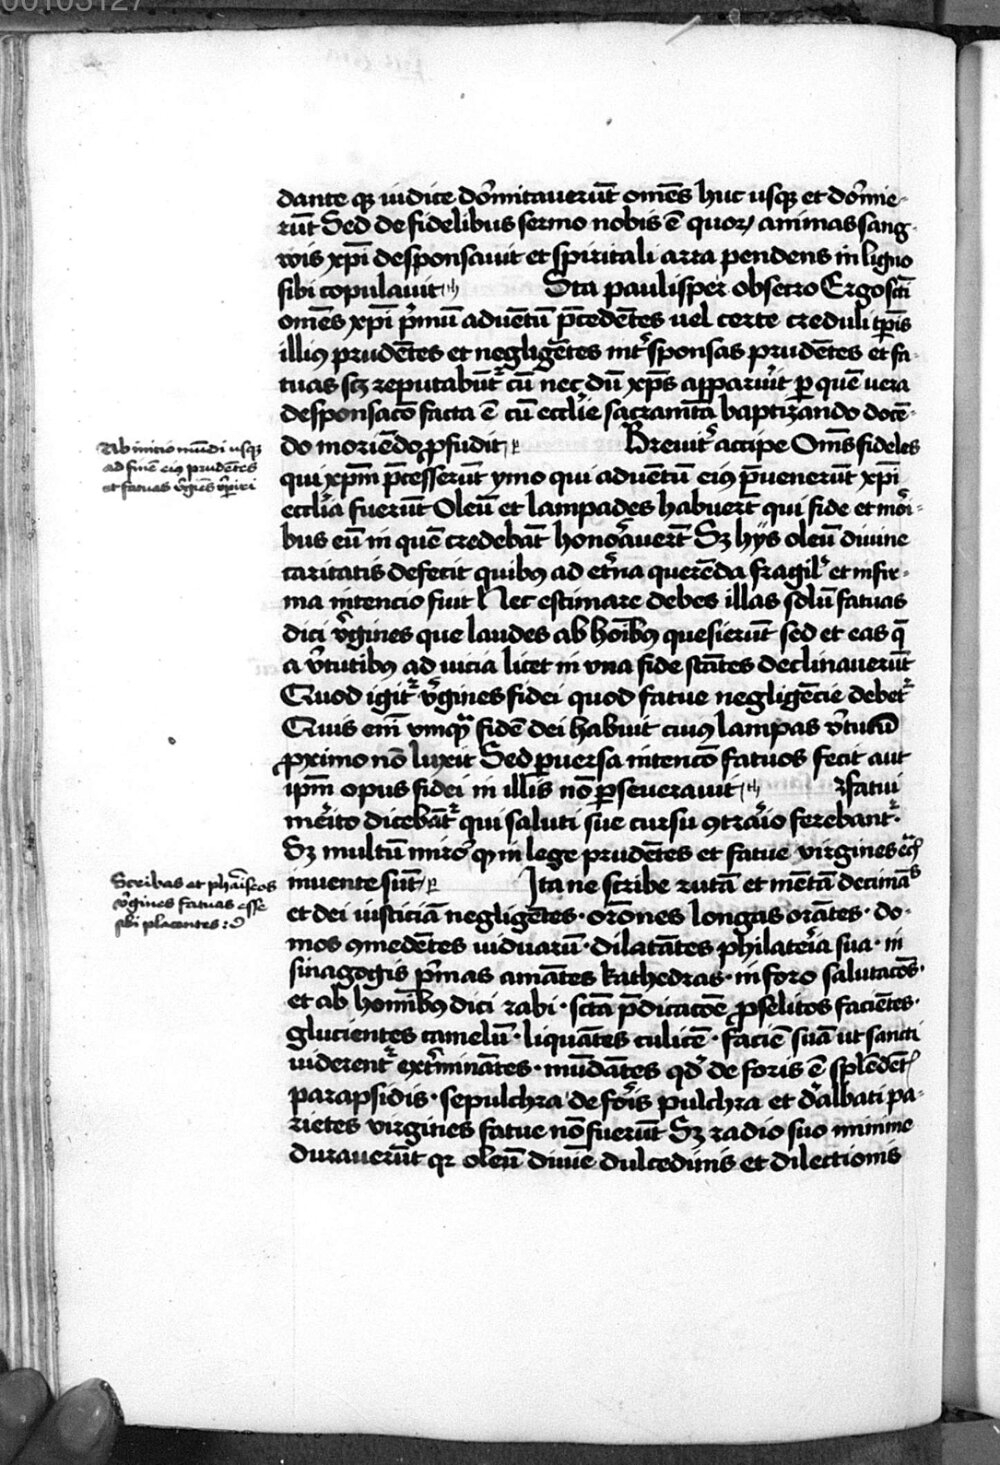 00103127
dante qꝫ iudice dor̄mitauerūt om̄es huc usqꝫ et dor̄mie-
rūt Sed de fidelibus sermo nobis ē quoꝝ animas sang-
wis xp̄i desponsauit et spiritali arra pendens in ligno
sibi copulauit Sta paulisper obsecro Ergo
om̄es xp̄i p̄mū aduētū p̄cedētes uel certe creduli tp̄is
illiꝰ prudētes et negligētes int̉ sponsas prudētes et fa-
tuas scꝫ reputabūt̉ cū nec dū xp̄s apparuit ꝑ quē uera
desponsaco̅ facta ē cū eccl̄ie sacramēta baptizando docē-
do moriēdo ꝓfudit Breuit̉ accipe Om̄s fideles
qui xp̄m p̄cesserūt ymo qui aduētū eiꝰ p̄uenerūt xp̄i
eccl̄ia fuerūt Oleū et lampades habuerūt qui fide et mori-
bus eū in quē credebāt honorauerūt Sꝫ hijs oleū diuine
caritatis defecit quibꝰ ad et̉na querēda fragil̉ et infir-
ma intencio fuit Nec estimare debes illas solū fatuas
dici v̉gines que laudes ab hoīibꝰ quesierūt sed et eas q̄
a v̉tutibꝰ ad uicia licet in vna fide stātes declinauerūt
Quod igit̉ v̉gines fidei quod fatue negligēcie debet̉
Quis em̄ vmqꝫ fidē dei habuit cuius lampas v̉tutū
ꝓximo nō luxit Sed ꝑuersa intenco̅ fatuos fecit aut
ip̄m opus fidei in illis nō ꝑseuerauit fatui
mēito dicebāt̉ qui saluti sue cursu ꝯtrario ferebant̉·
Sꝫ multū miror qꝫ in lege prudētes et fatue virgines
inuente sūt Ita ne scribe rutā et mētā decimās
et dei iusticiā negligētes· oro̅nes longas orātes· do-
mos ꝯmedētes uiduarū· dilatātes philateria sua· in
sinagogis p̉mas amātes kathedras· in foro salutaco̅s·
et ab hom̄ibꝰ dici rabi· p̄dicaco̅e ꝓselitos faciētes·
glucientes camelū· liquātes culicē· faciē suā ut sancti
uiderent̉ ext̉minātes· mūdātes qd̉ de foris ē splēdēt
parapsidis· sepulchra de foris pulchra et dealbati pa-
rietes virgines fatue nō fuerūt Sꝫ radio suo minime
durauerūt qꝛ oleū diuīe dulcedinis et dilectionis
Ab inicio mūdi usqꝫ
ad finē eiꝰ prudētes
et fatuas v̉gies
Scribas et pharīseos
v̉gines fatuas esse
sibi placentes